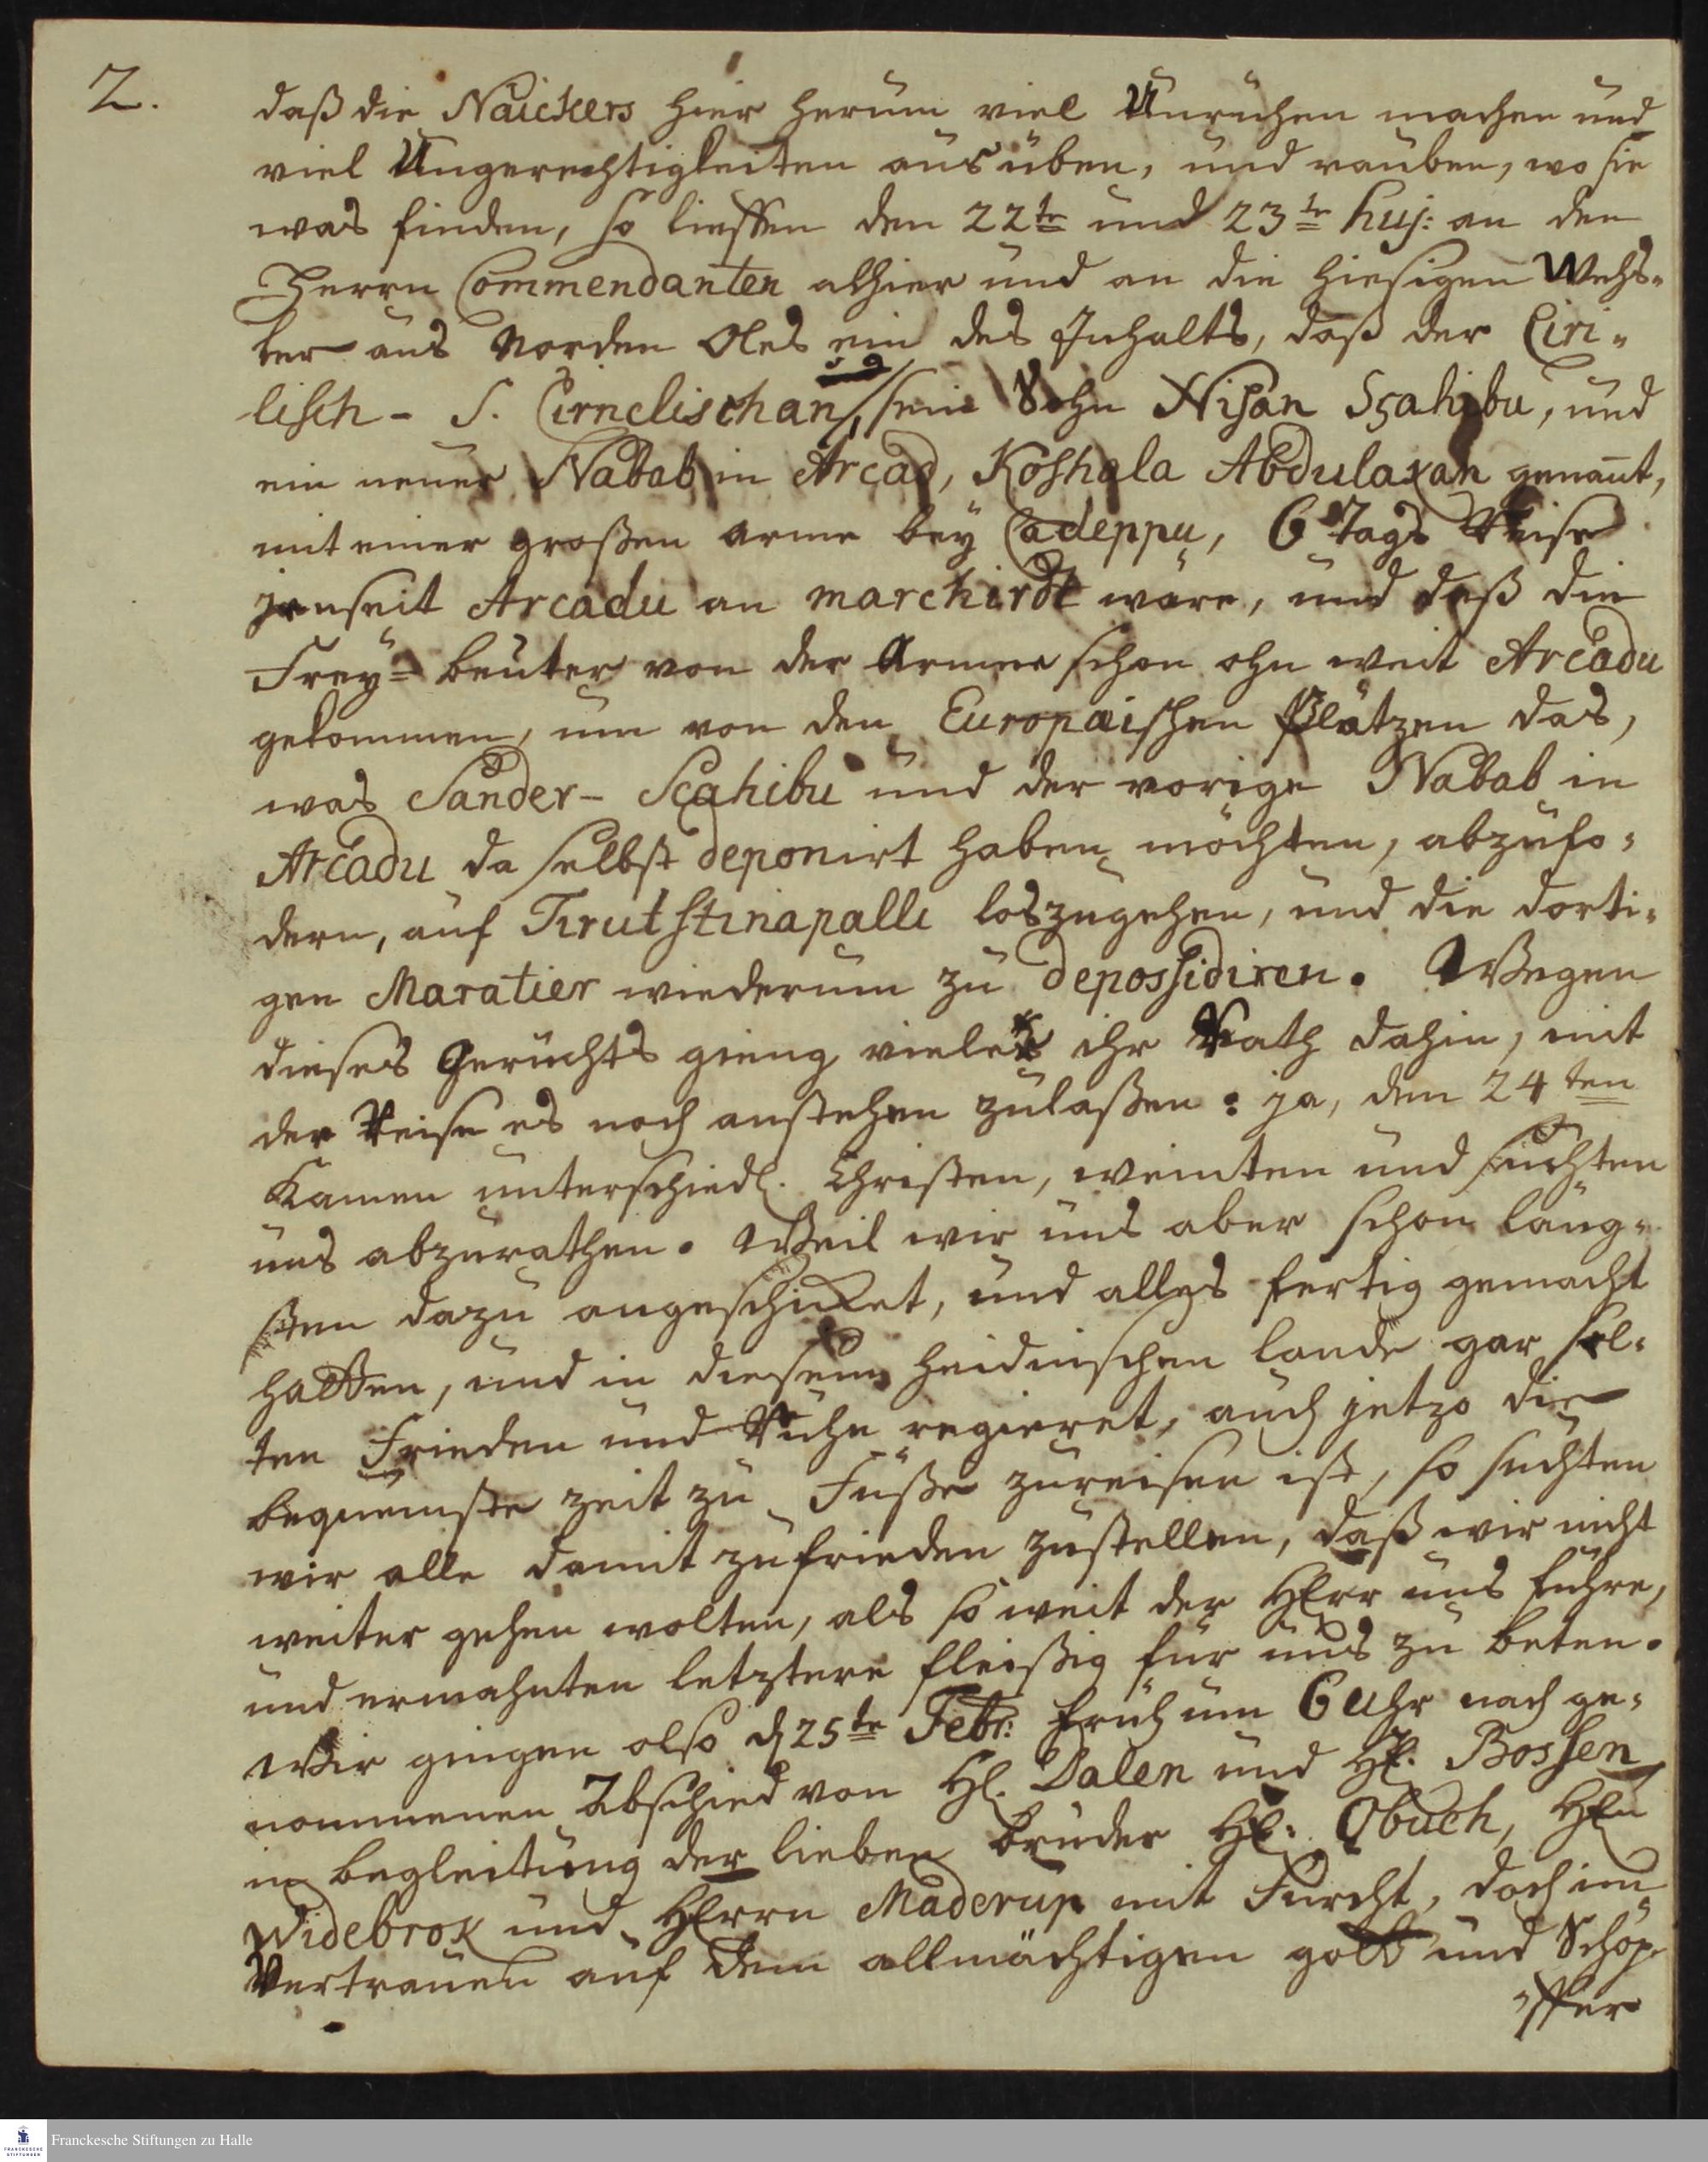 2.
daß die Naickers hier herum viel Unruhen machen und
viel Ungerechtigkeiten ausüben, und rauben, wo sie
was finden, so lieffen den 22te und 23te huj: an den
Herrn Commendanten alhier und an die hiesigen Wechs-
ler aus Norden Oles ein des Inhalts, daß der Ciri-
lisch- S. Cirnelischan, sein Sohn Nisan Szahibu, und
ein neuer Nabab in Arcad, Koshala Abdulaxan genañt,
mit einer großen arme bey Cadeppu, 6 Tags Reise
jenseit Arcadu an marchirdt wäre, und daß die
Frey-beuter von der Armee schon ohn weit Arcadu
gekommen, um von den Europäischen Plätzen das,
was Sander-Scahibu und der vorige Nabab in
Arcadu da selbst deponirt haben möchten, abzufo-
dern, auf Tirutstinapalli loszugehen, und die dorti-
gen Maratier wiederum zu depossidiren. Wegen
dieses Gerüchts gieng vieler ihr Rath dahin, mit
der Reise es noch anstehen zulaßen: ja, den 24ten
Kamen unterschiedl. Christen, weinten und suchten
uns abzurathen. Weil wir uns aber schon läng-
sten dazu angeschicket, und alles fertig gemacht
hatten, und in diesem heidnischen Lande gar sel-
ten Frieden und Ruhe regieret, auch jetzo die
bequemste Zeit zu Fuße zureisen ist, so suchten
wir alle damit zufrieden zustellen, daß wir nicht
weiter gehen wolten, als so weit der HErr uns führe,
und ermahnten letztere fleißig für uns zu beten.
Wir gingen also d 25te Febr: früh um 6 Uhr nach ge-
nommenen Abschied von H. Dalen und H. Bossen
in Begleitung der lieben Brüder H: Obuch, HEn
Widebrok und HErrn Maderup mit Furcht, doch im
Vertrauen auf dem allmächtigen gott und Schöp-
-ffer
Franckesche Stiftungen zu Halle